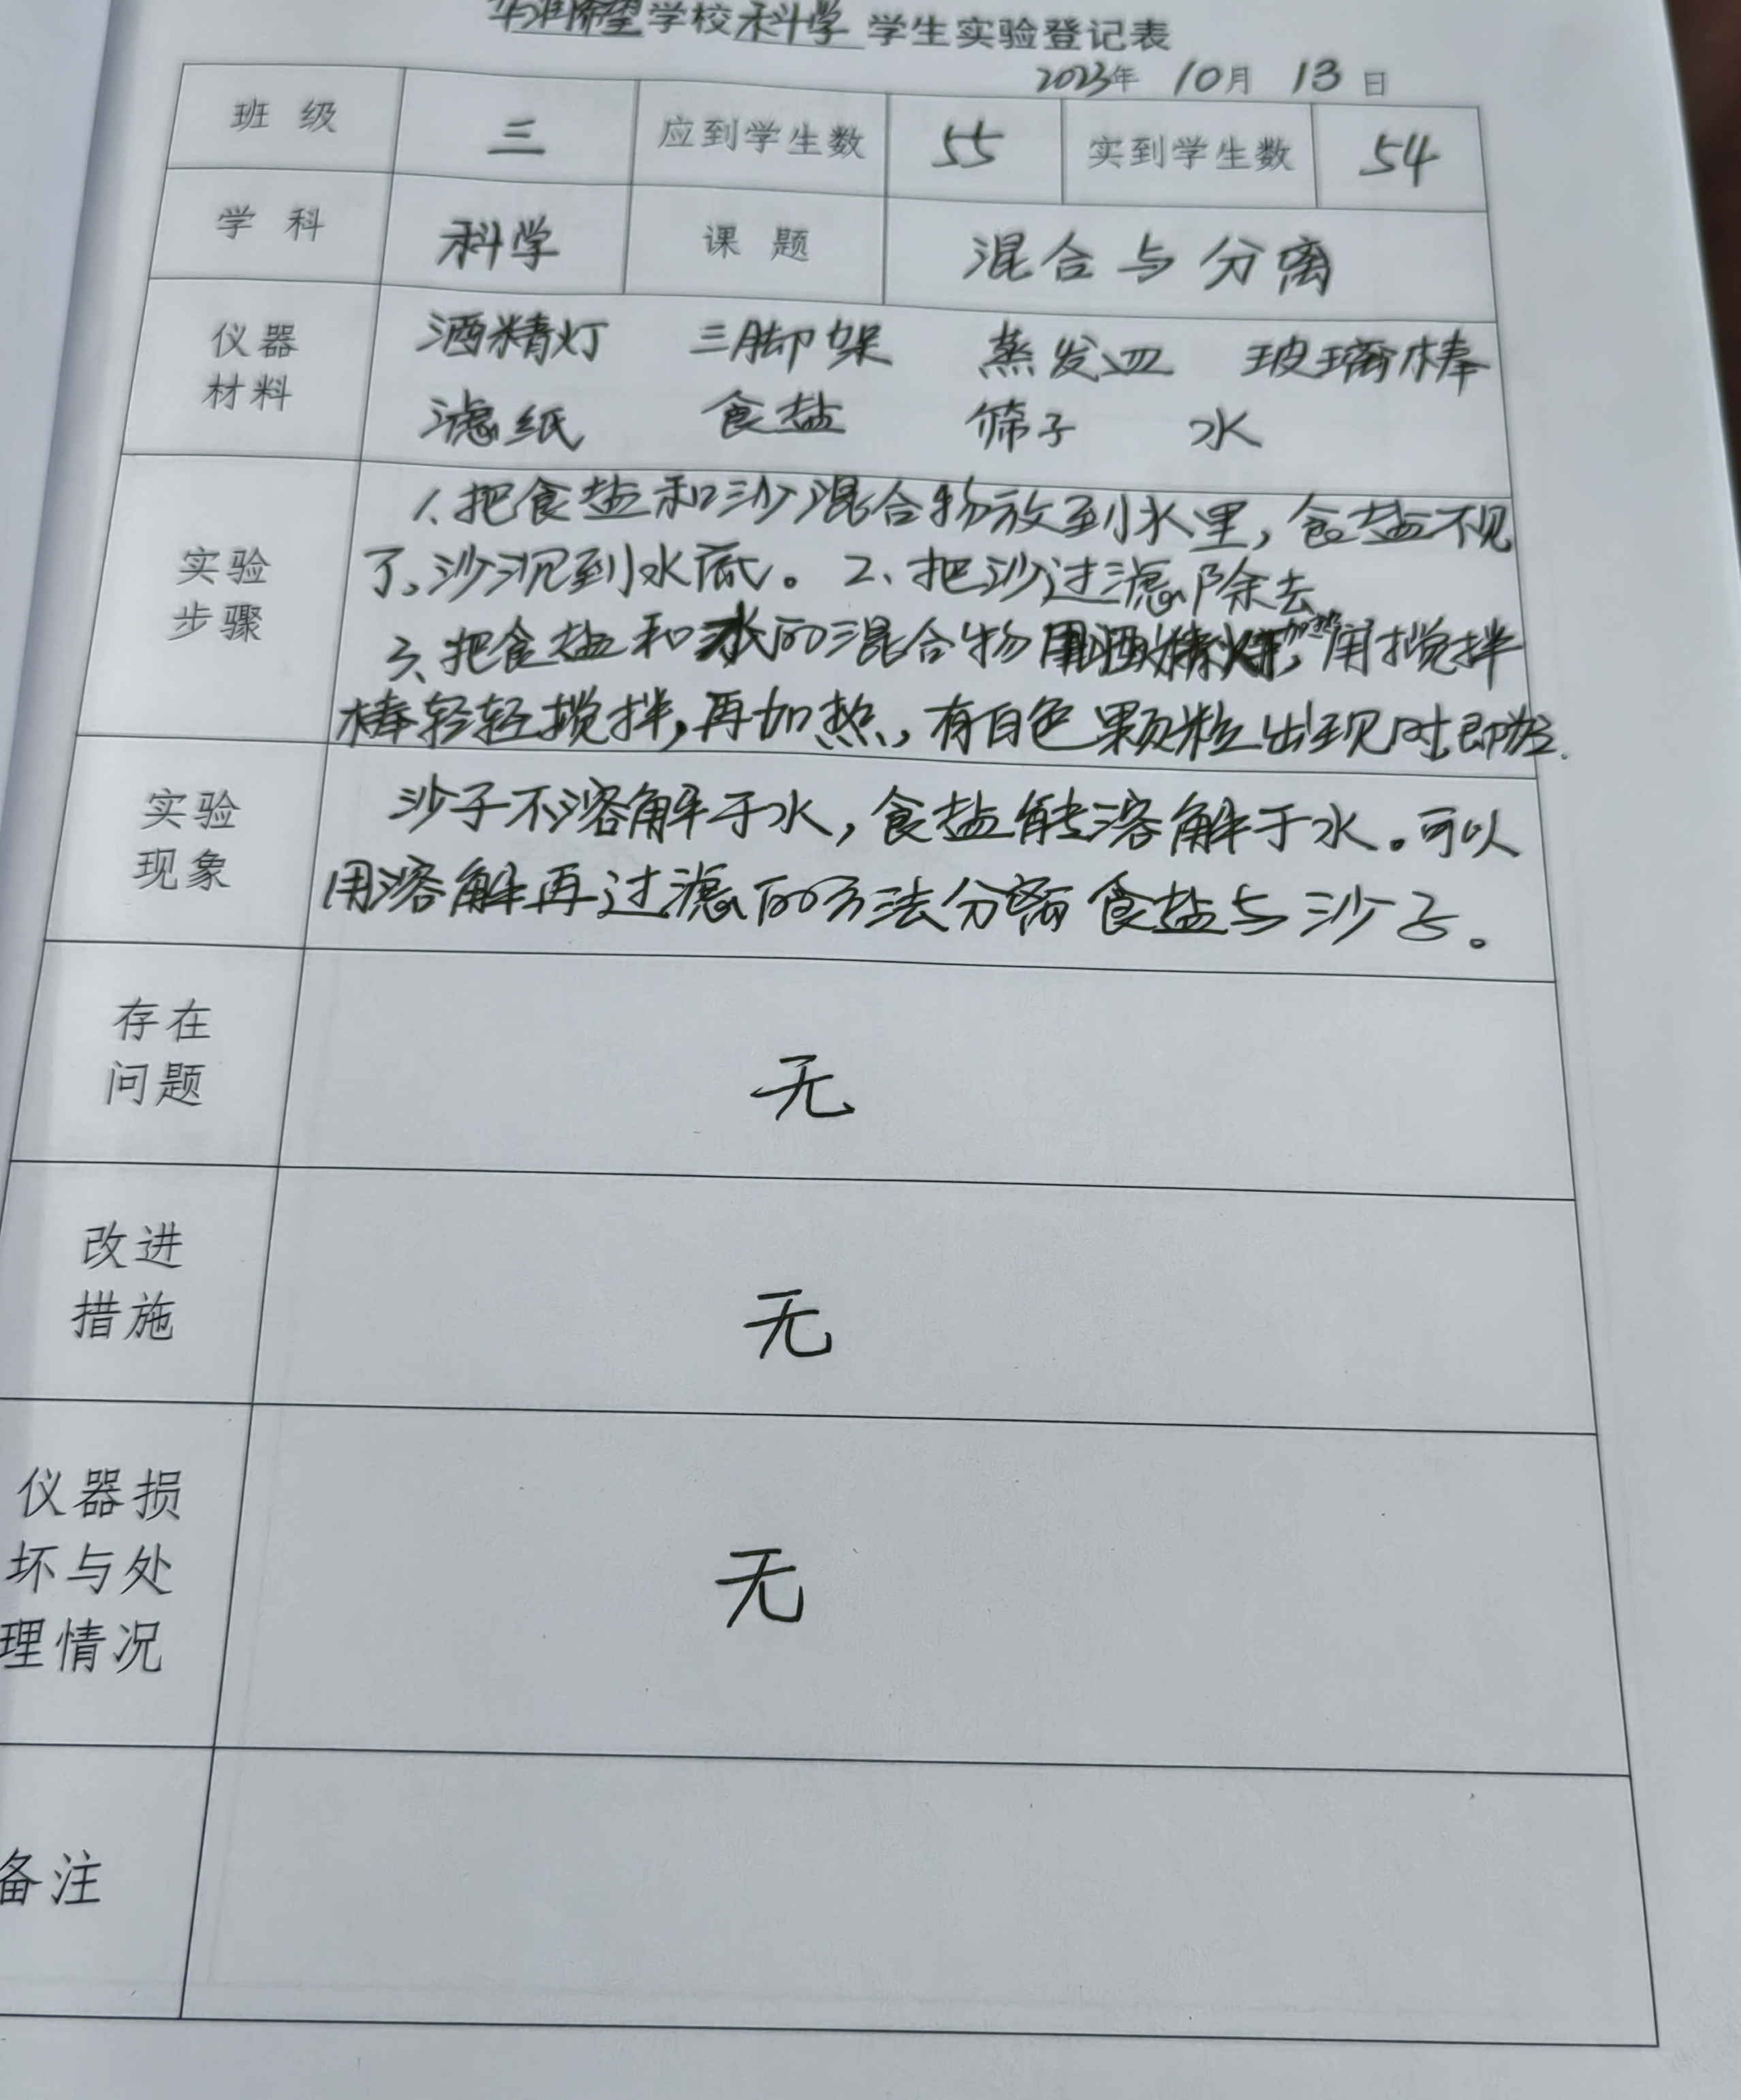 希望学校科学 学生实验登记表
2023年 10月 13日
班级 三 应到学生数 55 实到学生数 54
学科 科学 课题 混合与分离
仪器材料
酒精灯 三脚架 蒸发皿 玻璃棒
滤纸 食盐 筛子 水
实验步骤
1、把食盐和沙混合物放到水里，食盐不见
了，沙沉到水底。2、把沙过滤除去。
3、把食盐和水的混合物用酒精灯加热，用搅拌
棒轻轻搅拌，再加热，有白色颗粒出现时即
实验现象
沙子不溶解于水，食盐能溶解于水。可以
用溶解再过滤的方法分离食盐与沙子。
存在问题
无
改进措施
无
仪器损坏与处理情况
无
备注